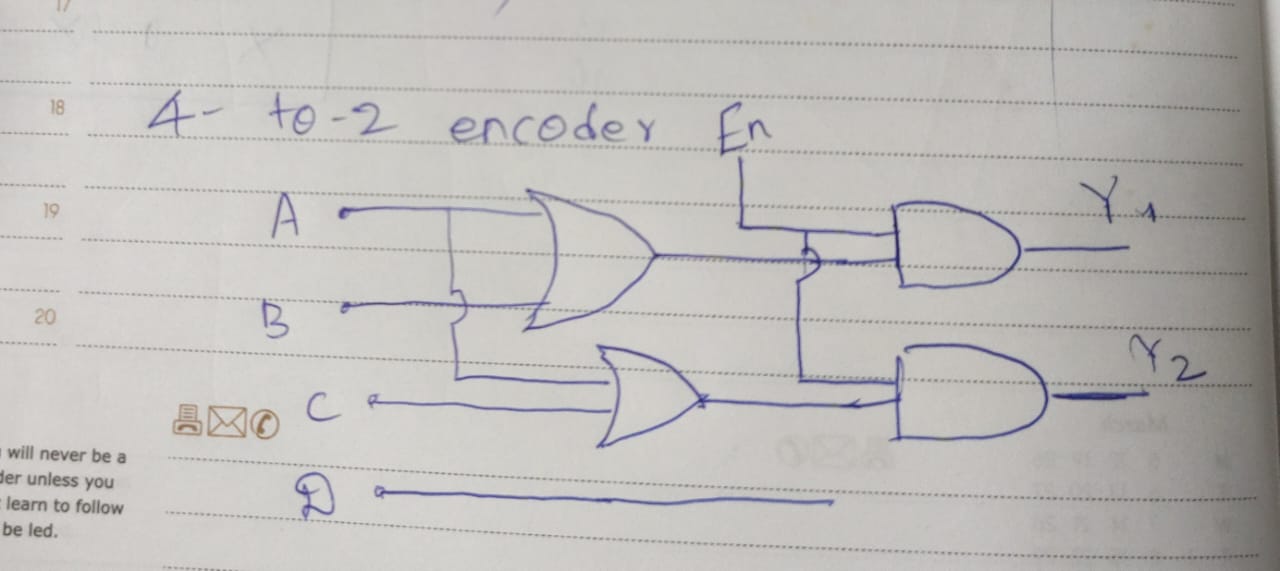 17
18
4- to-2 encoder En
19
A
Y1
20
B
Y2
C
will never be a
der unless you
learn to follow
be led.
D